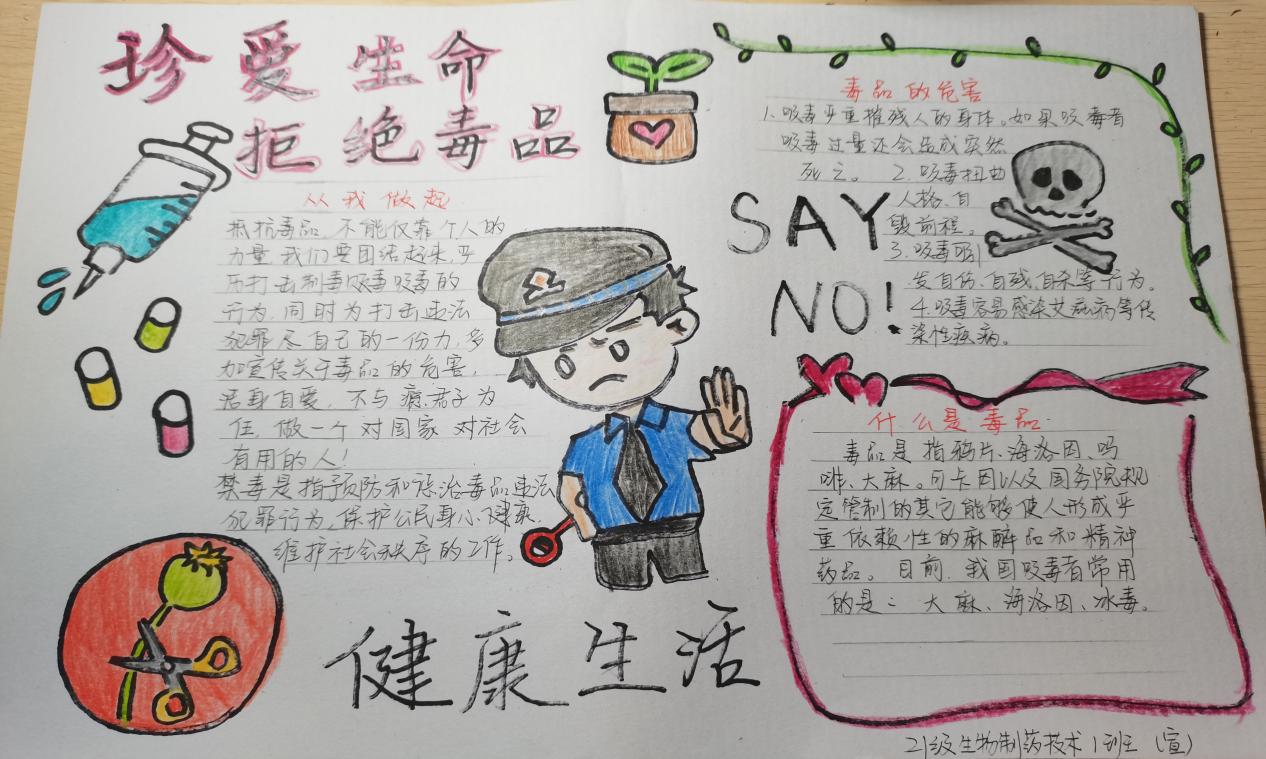 珍爱生命
拒绝毒品
从我做起
抵抗毒品,不能仅靠个人的
力量,我们要团结起来,严
厉打击制毒贩毒吸毒的
行为,同时为打击违法
犯罪尽自己的一份力,多
加宣传关于毒品的危害,
洁身自爱,不与瘾君子为
伍,做一个对国家对社会
有用的人!
禁毒是指预防和惩治毒品违法
犯罪行为,保护公民身心健康,
维护社会秩序的工作。
健康生活
毒品的危害
1、吸毒严重摧残人的身体。如果吸毒者
吸毒过量还会造成突然
死亡。 2.吸毒扭曲
人格,自
毁前程。
3.吸毒引
发自伤、自残、自杀等行为。
4.吸毒容易感染艾滋病等传
染性疾病。
SAY
NO!
什么是毒品
毒品是指鸦片、海洛因、吗
啡、大麻。可卡因以及国务院规
定管制的其它能够使人形成严
重依赖性的麻醉品和精神
药品。目前,我国吸毒者常用
的是:大麻、海洛因、冰毒。
21级生物制药技术1班(宣)